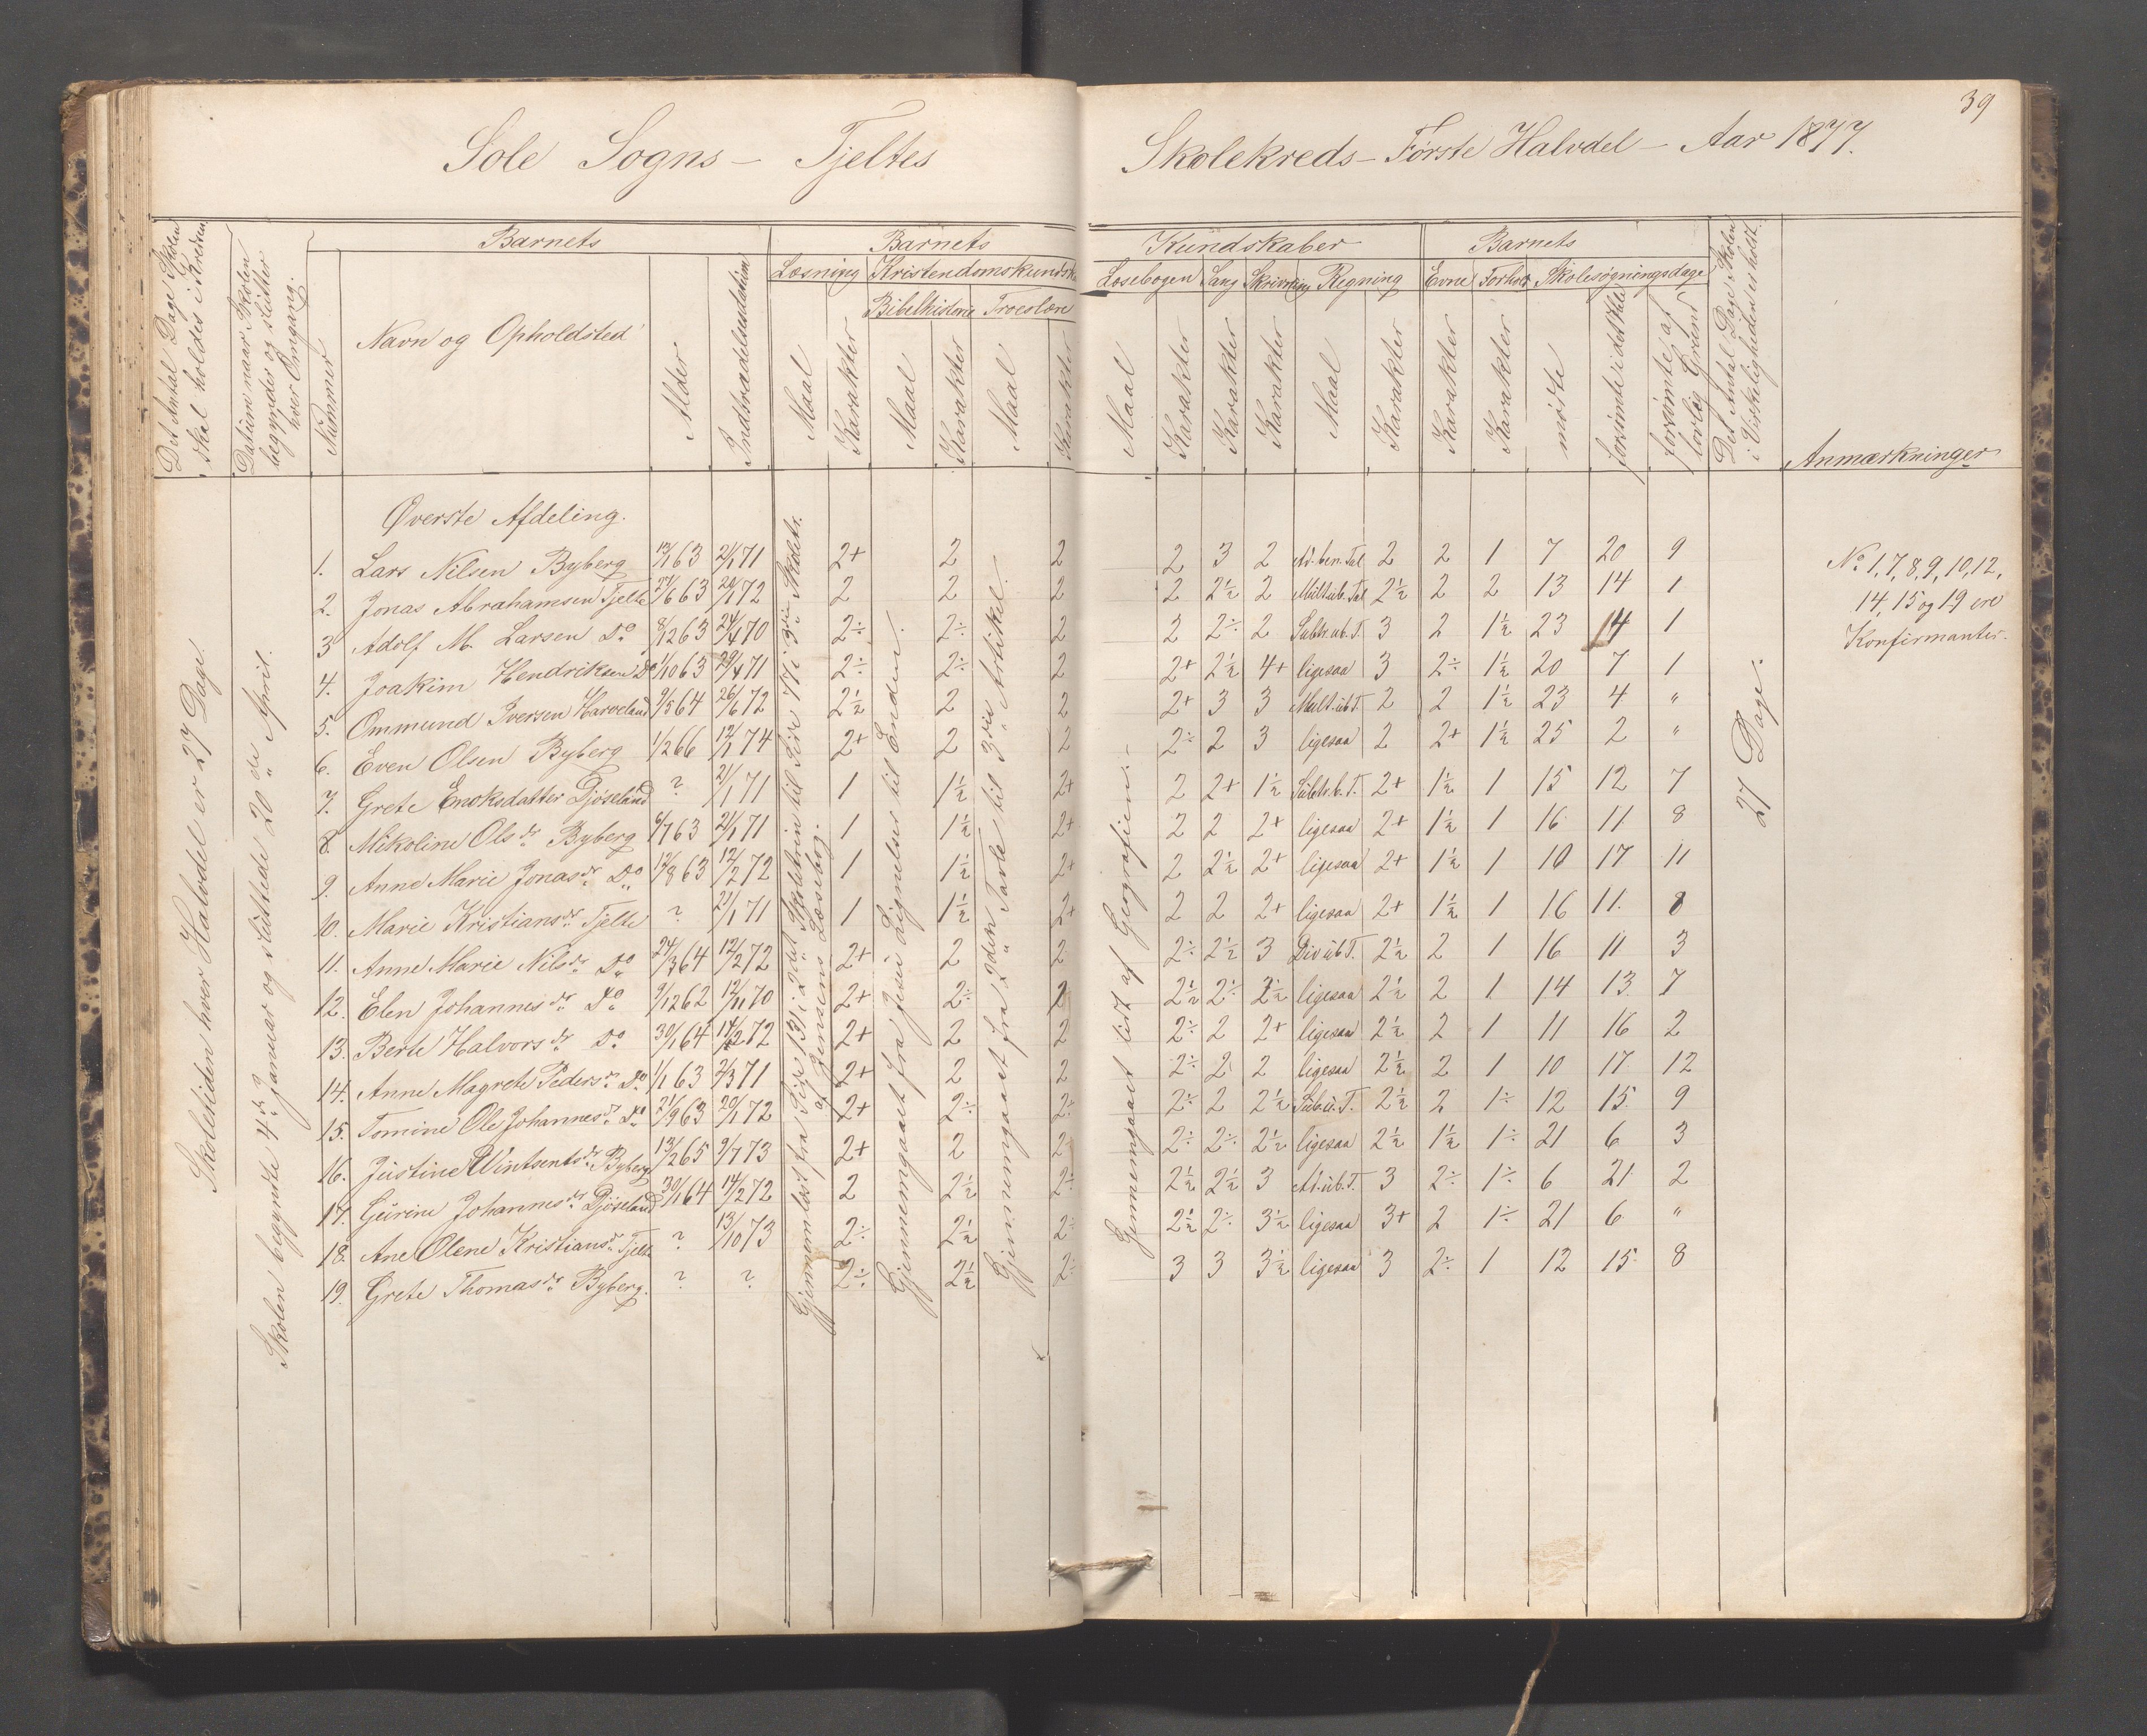 39
Sole Sogns – Tjeltes Skolekreds – Første Halvdel – Aar 1877.
Det Antal Dage Skolen skal holdes i Kredsen.
Datum naar Skolen begynder og slutter hver Omgang.
Barnets
Nummer
Navn og Opholdsted
Alder
Indtrædelsesdatum
Barnets Kundskaber
Læsning
Maal
Karakter
Kristendomskundsk
Bibelhistorie
Maal
Karakter
Troeslære
Maal
Karakter
Læsebogen
Maal
Karakter
Sang
Karakter
Skrivning
Karakter
Regning
Maal
Karakter
Barnets
Evne
Karakter
Forhold
Karakter
Skolesøgningsdage
mødte
forsømte i det Hele
forsømte af lovlig Grund
Det Antal Dage Skolen i Virkeligheden er holdt.
Anmærkninger
Skoletiden hver Halvdel er 27 Dage.
Skolen begyndte 4de Januar og sluttede 20de April.
Øverste Afdeling.
1. Lars Nilsen Byberg 13/1 63 21/1 71 2+ 2 2 2 3 2 Ad. ben. Tal 2 2 1 7 20 9
2. Jonas Abrahamsen Tjelte 27/6 63 20/1 72 2 2 2 2 2½ 2 Mult. ub. Tal 2½ 2 2 13 14 1
3 Adolf M. Larsen Do 8/12 63 24/4 70 2÷ 2÷ 2 2 2÷ 2 Subtr. ub. T. 3 2 1½ 23 14 1
4. Joakim Hendriksen Do 1/10 63 29/4 71 2÷ 2÷ 2 2+ 2½ 4+ ligesaa 3 2÷ 1½ 20 7 1
5. Ommund Iversen Harveland 9/5 64 26/6 72 2½ 2 2 2+ 3 3 Mult. ub T 2 2 1½ 23 4 "
6. Even Olsen Byberg 1/2 66 12/1 74 2+ 2 2 2÷ 2 3 ligesaa 2 2+ 1½ 25 2 "
7. Grete Enoksdatter Djøseland ? 21/1 71 1 1½ 2+ 2 2+ 1½ Subtr. b. T. 2+ 1½ 1 15 12 7
8. Mikoline Olsdr. Byberg 6/7 63 21/1 71 1 1½ 2+ 2 2 2+ ligesaa 2+ 1½ 1 16 11 8
9. Anne Marie Jonasdr. Do 12/8 63 12/2 72 1 1½ 2+ 2 2½ 2+ ligesaa 2+ 1½ 1 10 17 11
10. Marie Kristiansdr. Tjelte ? 21/1 71 1 1½ 2+ 2 2 2+ ligesaa 2+ 1½ 1 16 11. 8
11. Anne Marie Nilsdr. Do 24/3 64 12/2 72 2+ 2 2 2÷ 2½ 3 Div ub T. 2½ 2 1 16 11 3
12. Elen Johannesdr. Do 9/12 62 12/11 70 2+ 2÷ 2 2½ 2÷ 2½ ligesaa 2½ 2 1 14 13. 7
13. Berte Halvorsdr. Do 30/1 64 14/2 72 2+ 2 2 2÷ 2 2+ ligesaa 2½ 2 1 11 16 2
14. Anne Magrete Pedersdr. Do 1/1 63 2/3 71 2+ 2 2 2÷ 2 2 ligesaa 2½ 2 1 10 17 12
15. Tomine Ole Johannesdr. Do 21/9 63 20/1 72 2+ 2÷ 2÷ 2÷ 2 2½ Sub. u. T. 2½ 2 1÷ 12 15. 9
16. Justine Wintsentsdr. Byberg 13/2 65 9/7 73 2+ 2 2 2÷ 2÷ 2½ ligesaa 2½ 1½ 1÷ 21 6 3
17. Gurine Johannesdr. Djøseland 30/1 64 14/2 72 2 2½ 2÷ 2½ 2½ 3 Ad. ub. T. 3 2÷ 1÷ 6 21 2
18. Ane Olene Kristiansdr. Tjelte ? 13/10 73 2÷ 2½ 2÷ 2½ 2÷ 3½ ligesaa 3+ 2 1÷ 21 6 "
19. Grete Thomasdr. Byberg. ? ? 2÷ 2½ 2÷ 3 3 3½ ligesaa 3 2÷ 1 12 15. 8
Gjennemlæst fra Side 131 i 2det Skoletrin til Side 77 i 3die Skoletr.
af Jensens Læsebog.
Gjennemgaaet fra Jesu Lignelser til Enden.
Gjennemgaaet fra 2den Tavle til 3die Artikel.
Gjennemgaaet lidt af Geografien.
27 Dage.
No 1, 7, 8, 9, 10, 12,
14, 15 og 19 ere
Konfirmanter.